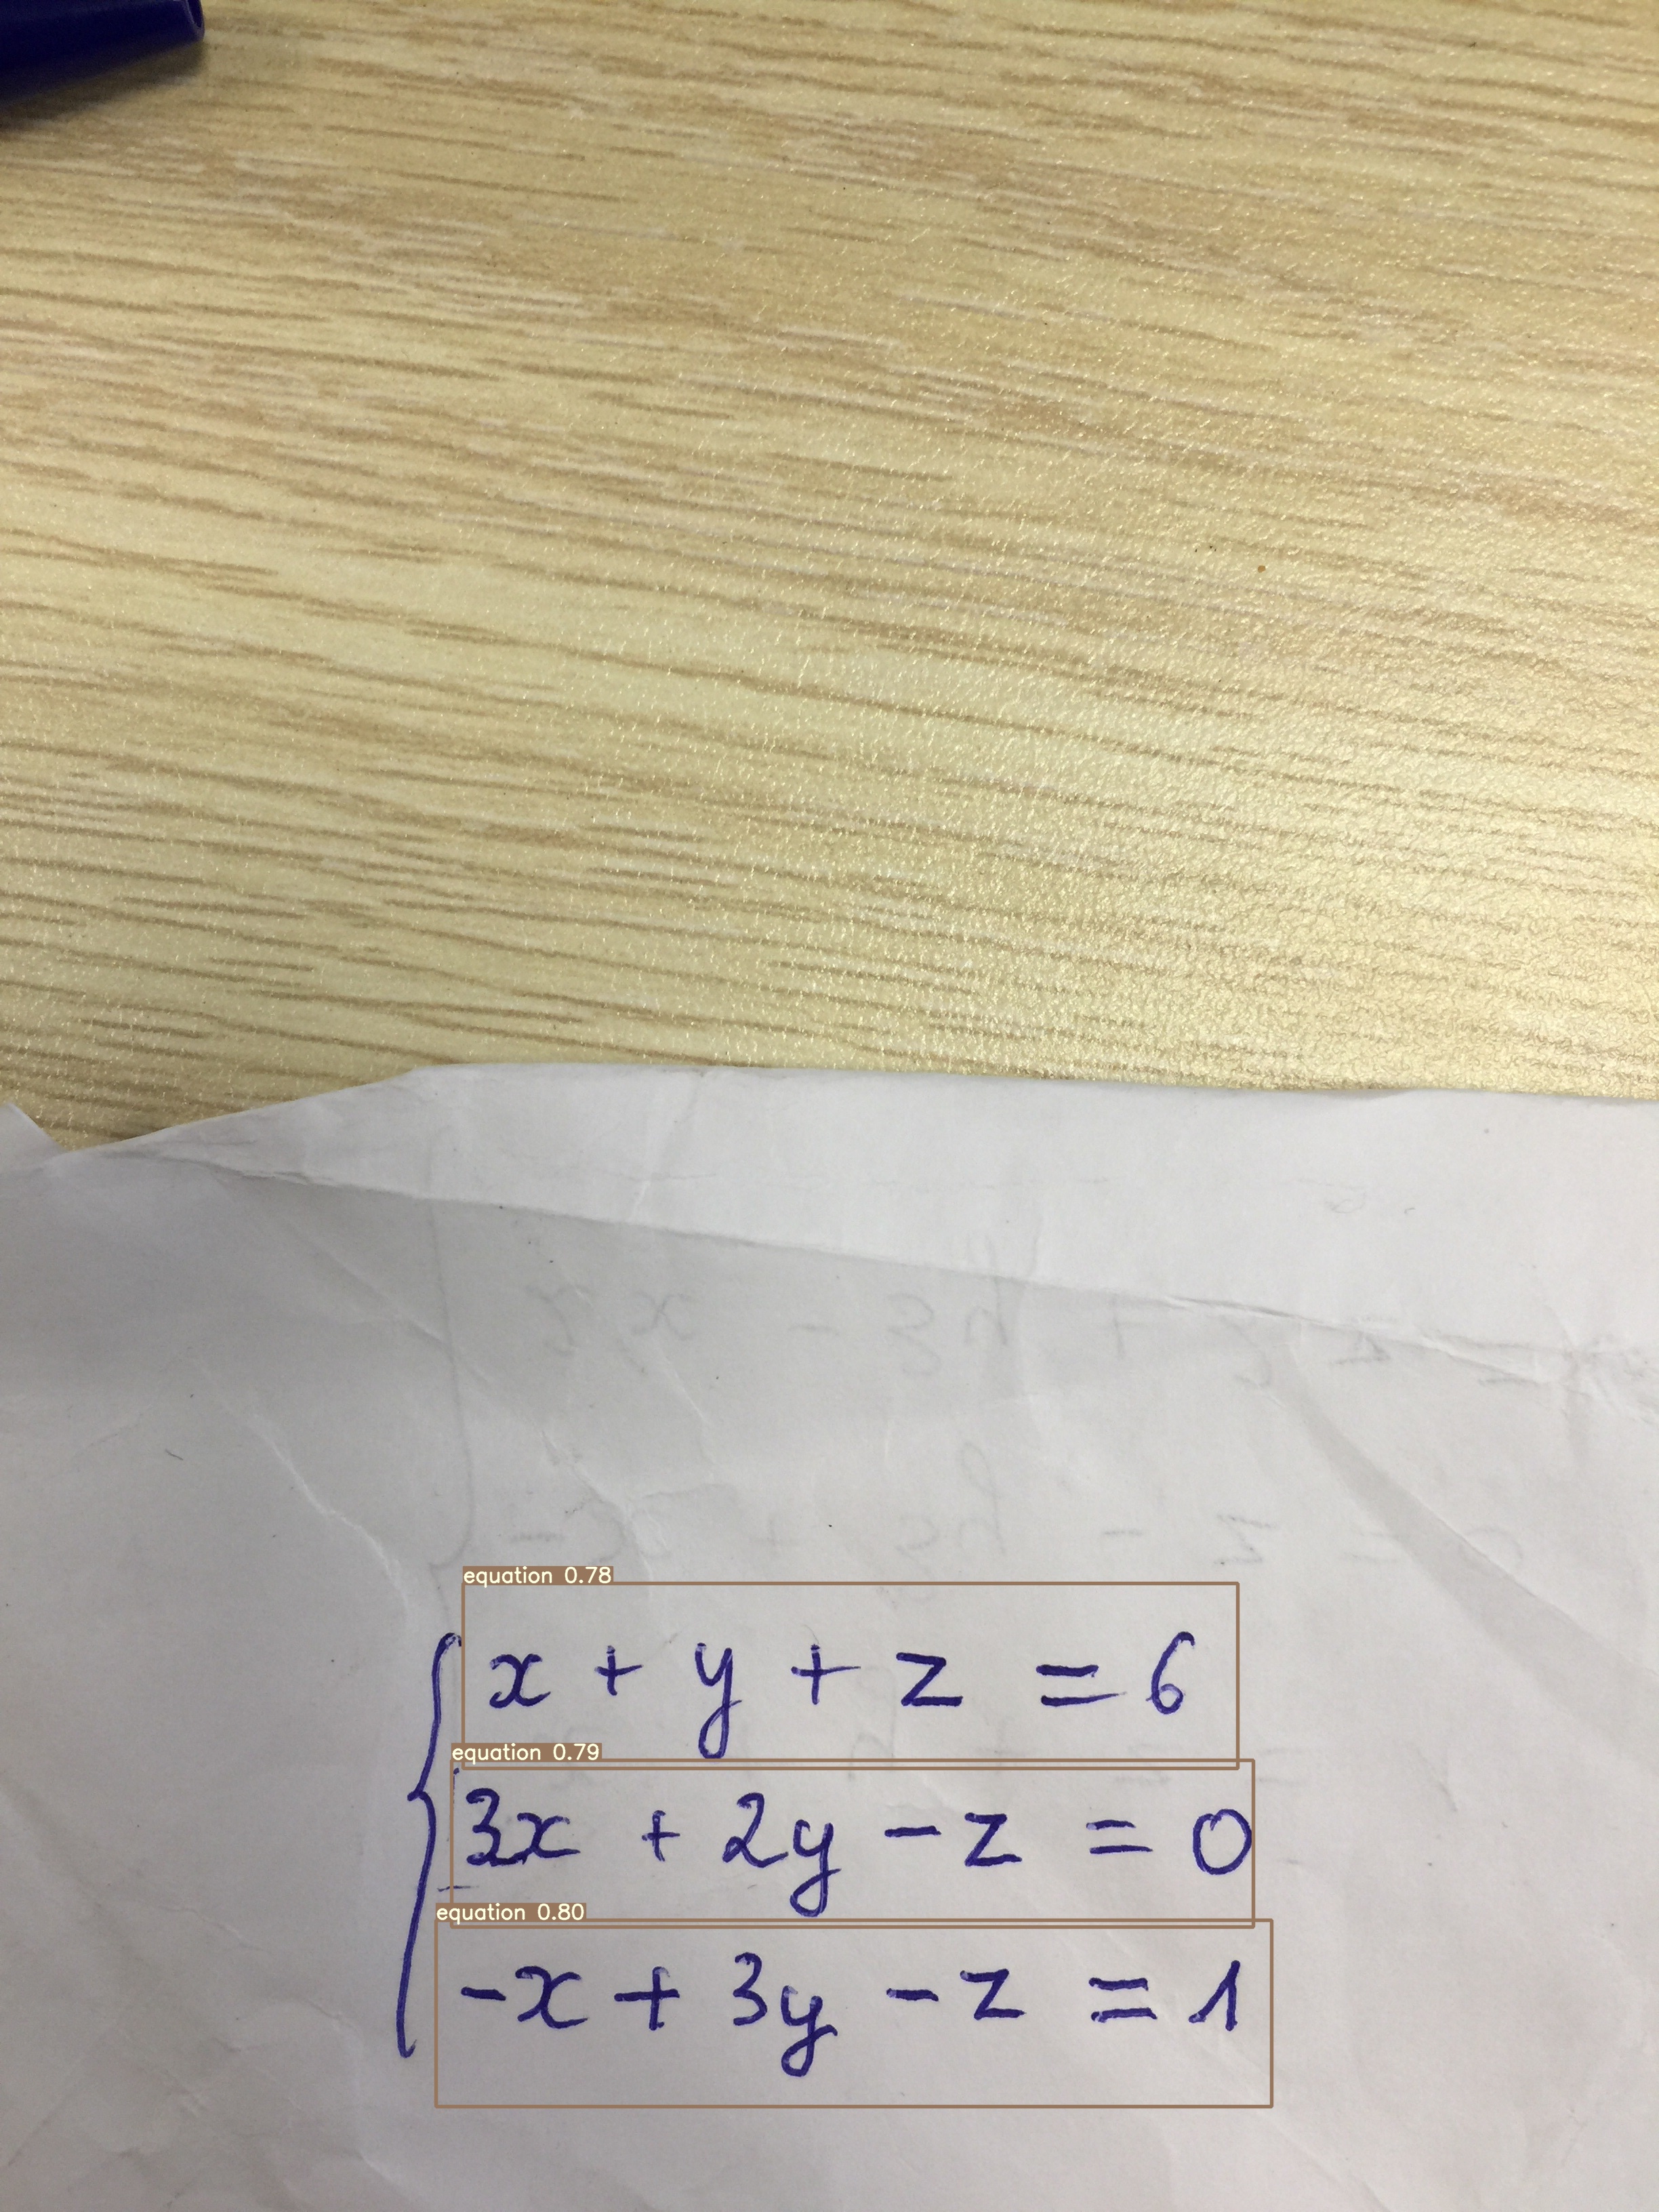 equation 0.78
x + y + z = 6
equation 0.79
3x + 2y - z = 0
equation 0.80
-x + 3y - z = 1